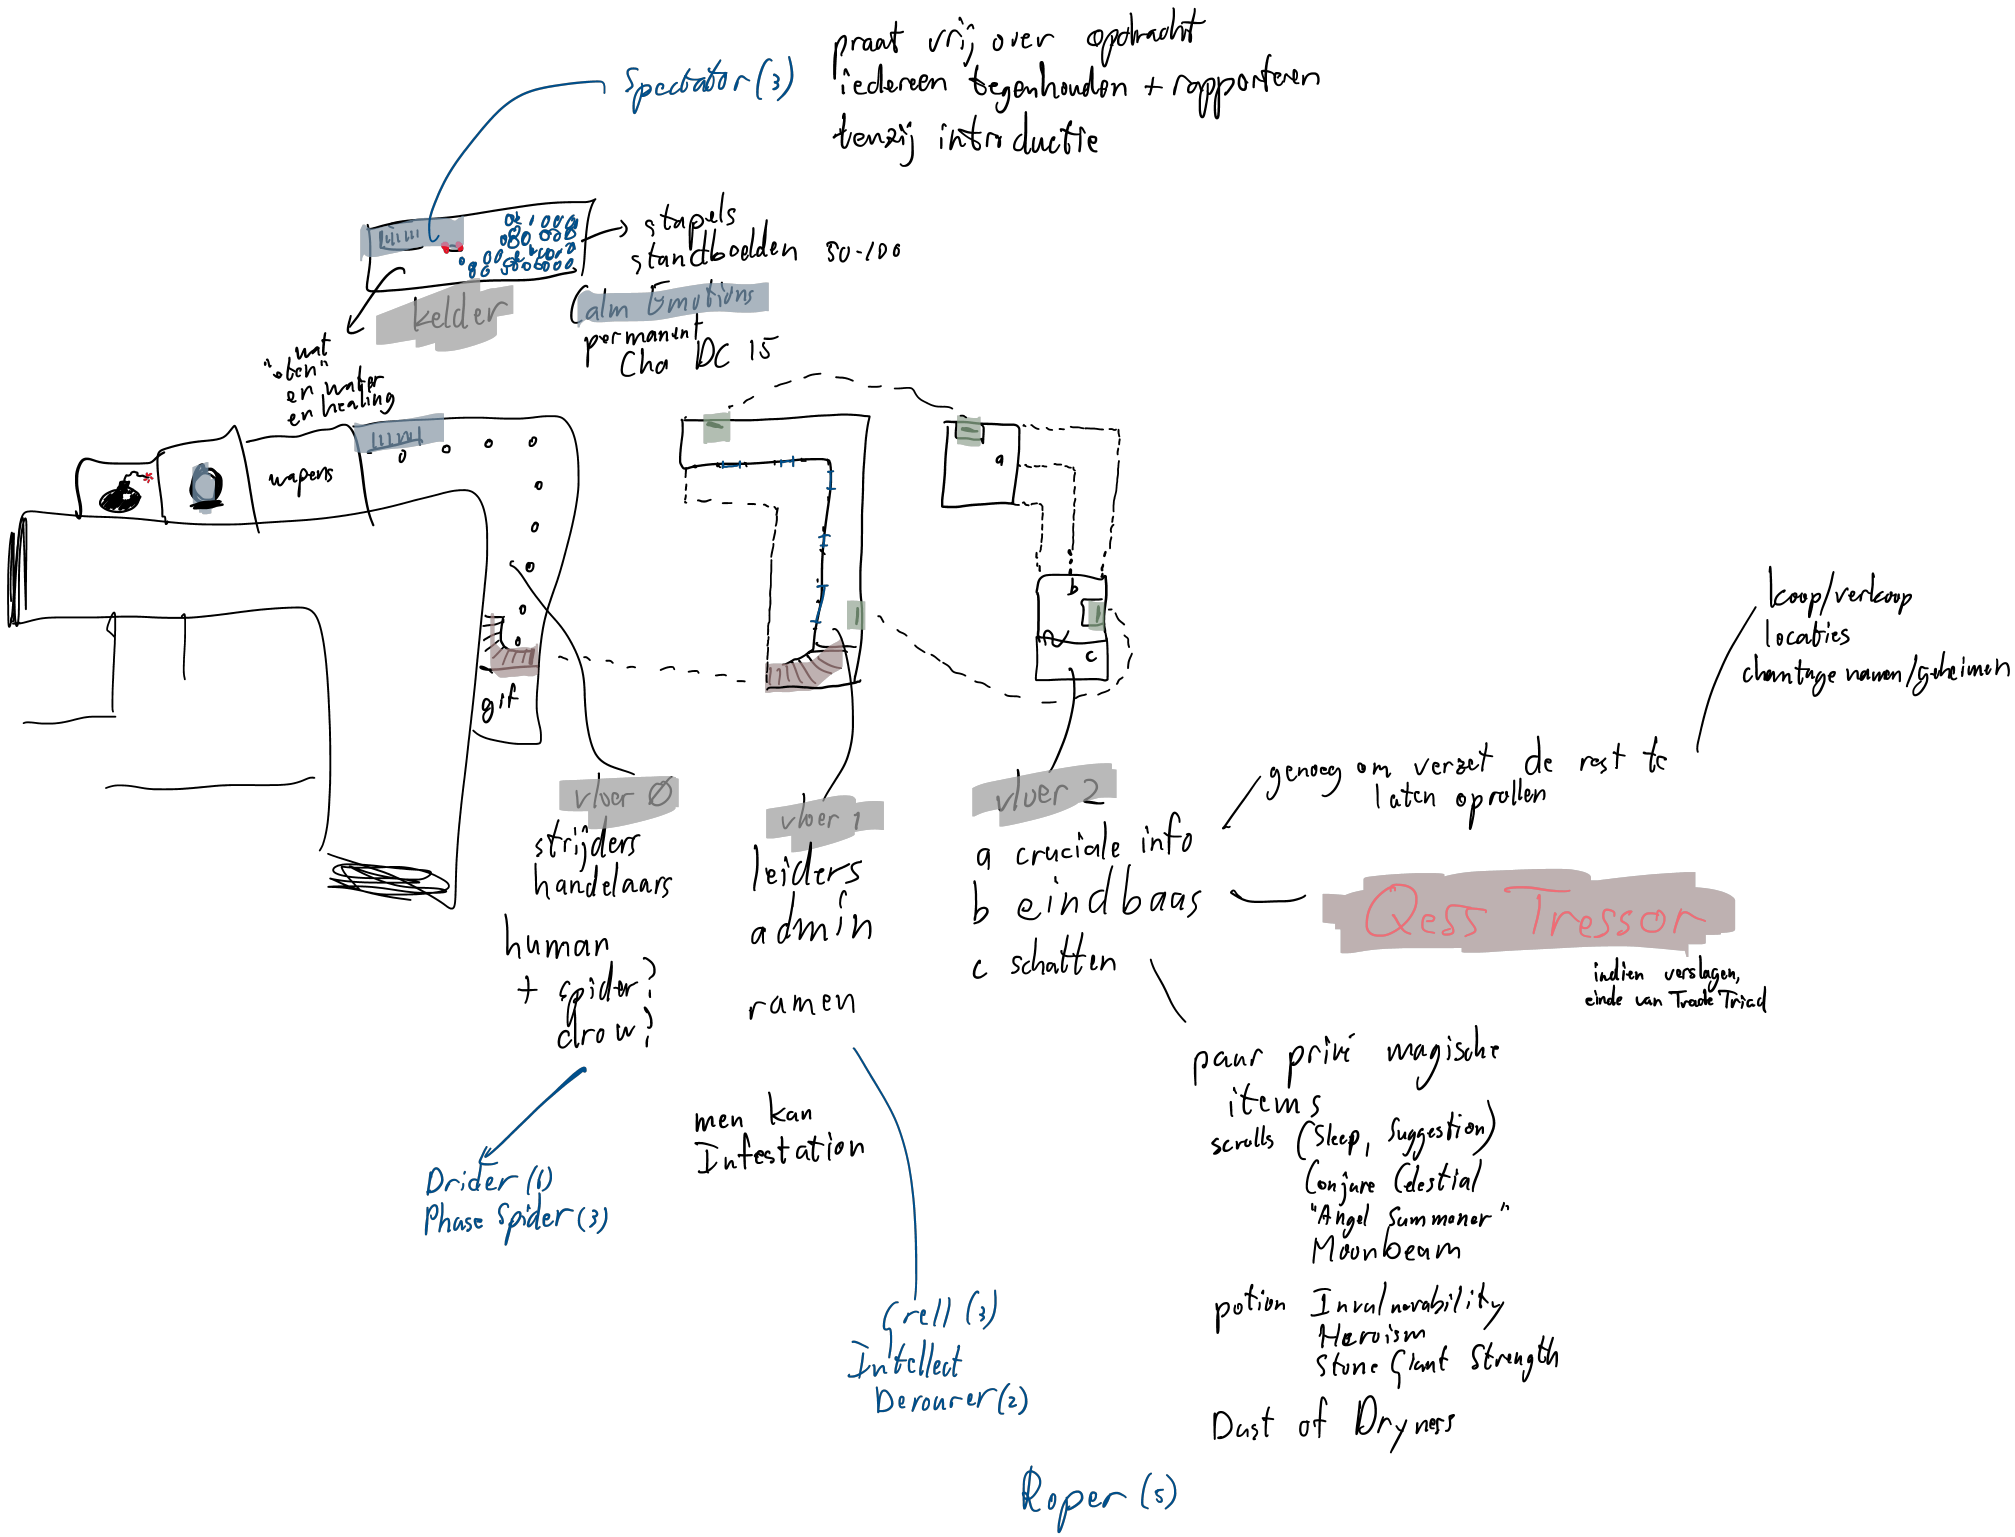 praat vrij over opdracht
iedereen tegenhouden + rapporteren
tenzij introductie
Spectator (3)
stapels
standbeelden 50-100
kelder
Calm Emotions
permanent
Cha DC 15
wat
"eten"
en water
en healing
wapens
gif
a
b
c
koop/verkoop
locaties
chantage namen/geheimen
genoeg om verzet de rest te
laten oprollen
vloer 0
strijders
handelaars
human
+ spider?
drow?
Drider (6)
Phase Spider (3)
vloer 1
leiders
admin
ramen
men kan
Infestation
Grell (3)
Intellect
Devourer (2)
vloer 2
a cruciale info
b eindbaas
c schatten
Qess Tressor
indien verslagen,
einde van Trade Triad
paar privé magische
items
scrolls (Sleep, Suggestion)
Conjure Celestial
"Angel Summoner"
Moonbeam
potion Invulnerability
Heroism
Stone Giant Strength
Dust of Dryness
Roper (5)